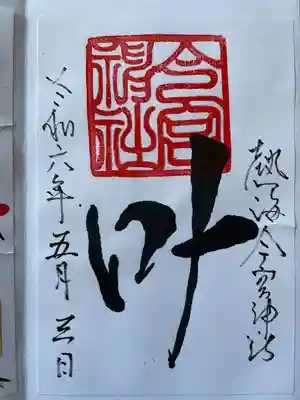 熱海今宮神社
今宮神社
叶
令和六年五月三日